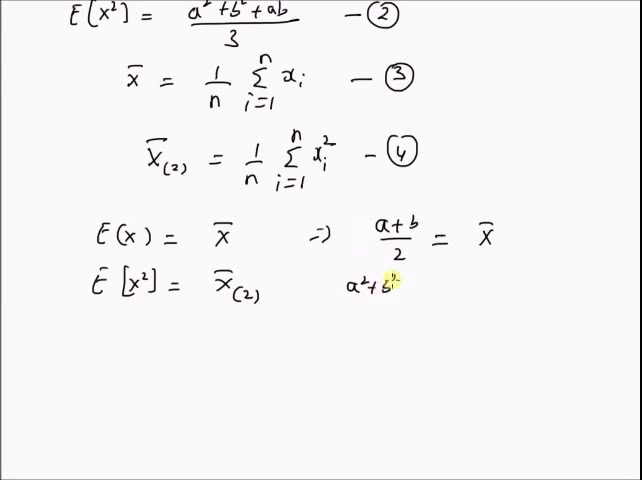 E[x²] = a² + b² + ab / 3 — ②
x̄ = 1/n Σ_{i=1}^{n} xᵢ — ③
X̄₍₂₎ = 1/n Σ_{i=1}^{n} xᵢ² — ④
E(x) = X̄ ⇒ a+b / 2 = X̄
E[x²] = X̄₍₂₎ a²+b²